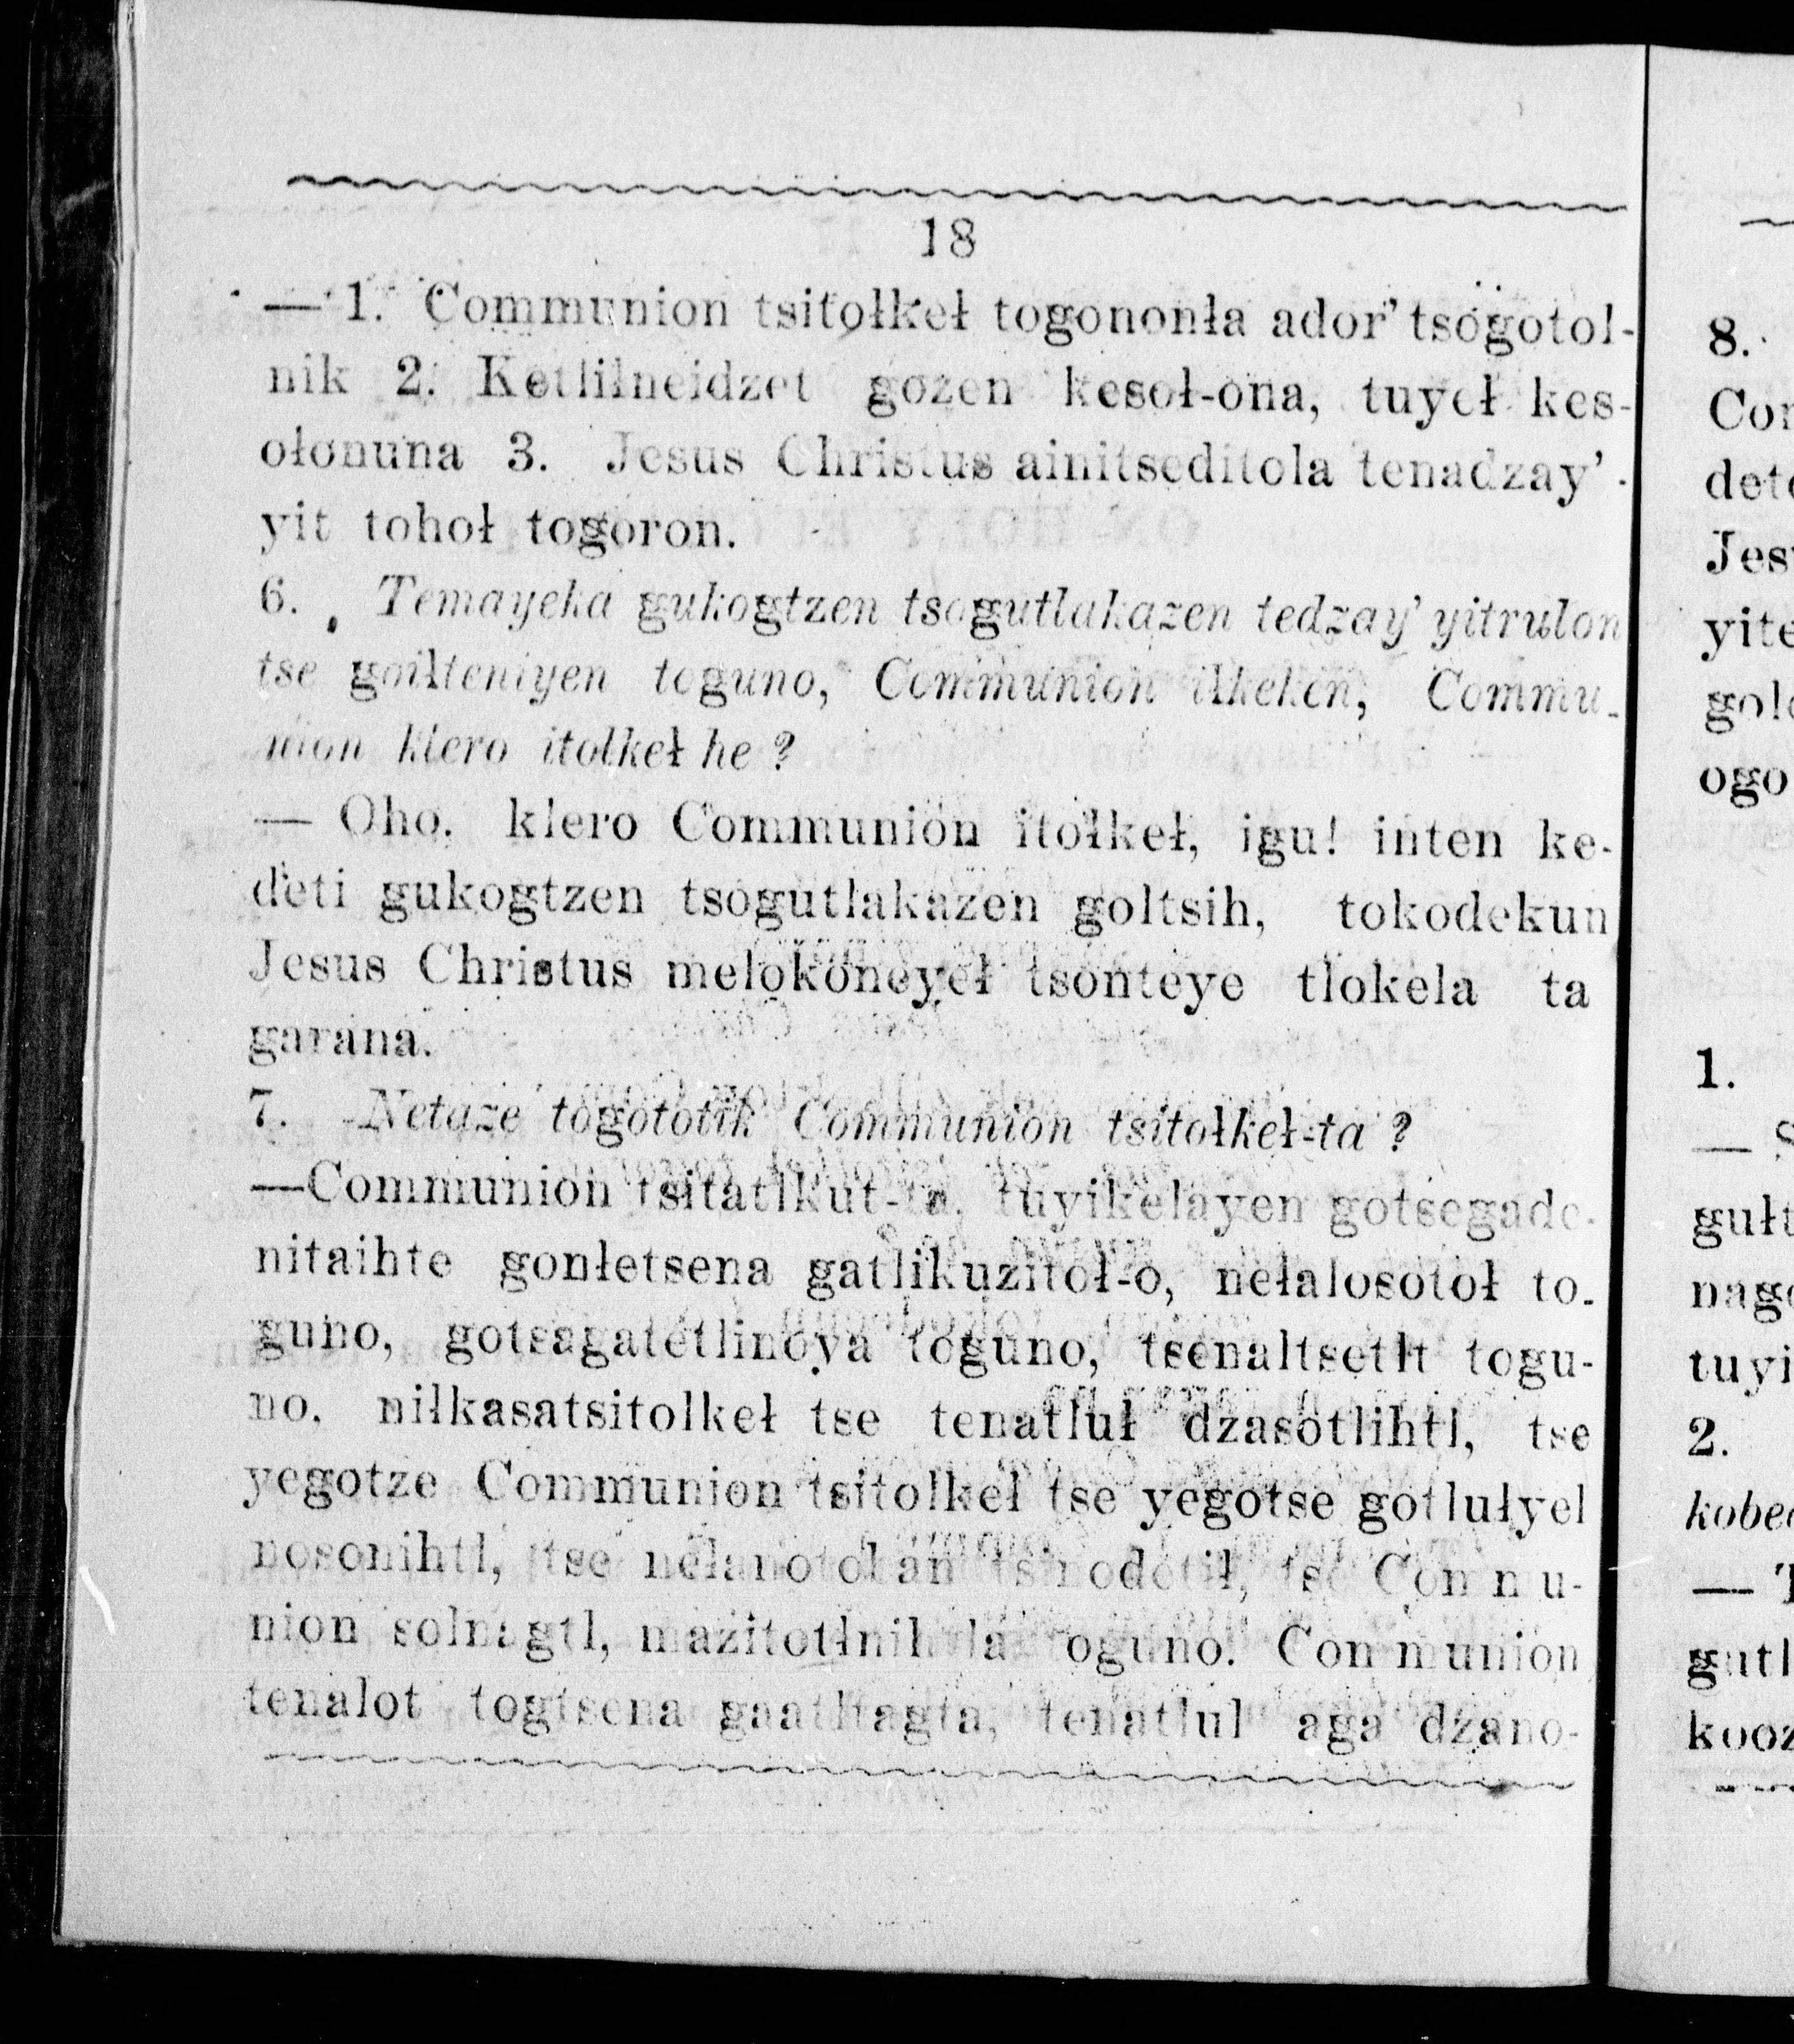 18
— 1. Communion tsitołkeł togononła ador' tsogotol-
nik 2. Ketlilneidzet gozen kesoł-ona, tuyeł kes-
ołonuna 3. Jesus Christus ainitseditola tenadzay'
yit tohoł togoron.
6. Temayeka gukogtzen tsogutlakazen tedzay' yitrulon
tse goiłteniyen toguno, Communion ilkeken, Commu-
nion klero itolkeł he ?
— Oho, klero Communion itołkeł, igu! inten ke-
deti gukogtzen tsogutlakazen goltsih, tokodekun
Jesus Christus melokoneyeł tsonteye tlokela ta
garana.
7. Netaze togototik Communion tsitołkeł-ta ?
—Communion tsitatlkut-ta, tuyikelayen gotsegade-
nitaihte gonłetsena gatlikuzitoł-o, nełalosotoł to-
guno, gotsagatetlinoya toguno, tsenaltsetlt togu-
no, niłkasatsitolkeł tse tenatluł dzasotlihtl, tse
yegotze Communion tsitolkeł tse yegotse gotlułyel
nosonihtl, tse tse Commu-
nion Communion
tenalot togtsena tenatlul aga dzano-
8.
Con
deto
Jes
yite
ogo
1.
— S
gułt
nago
tuyi
2.
kobe
— T
gutl
kooz